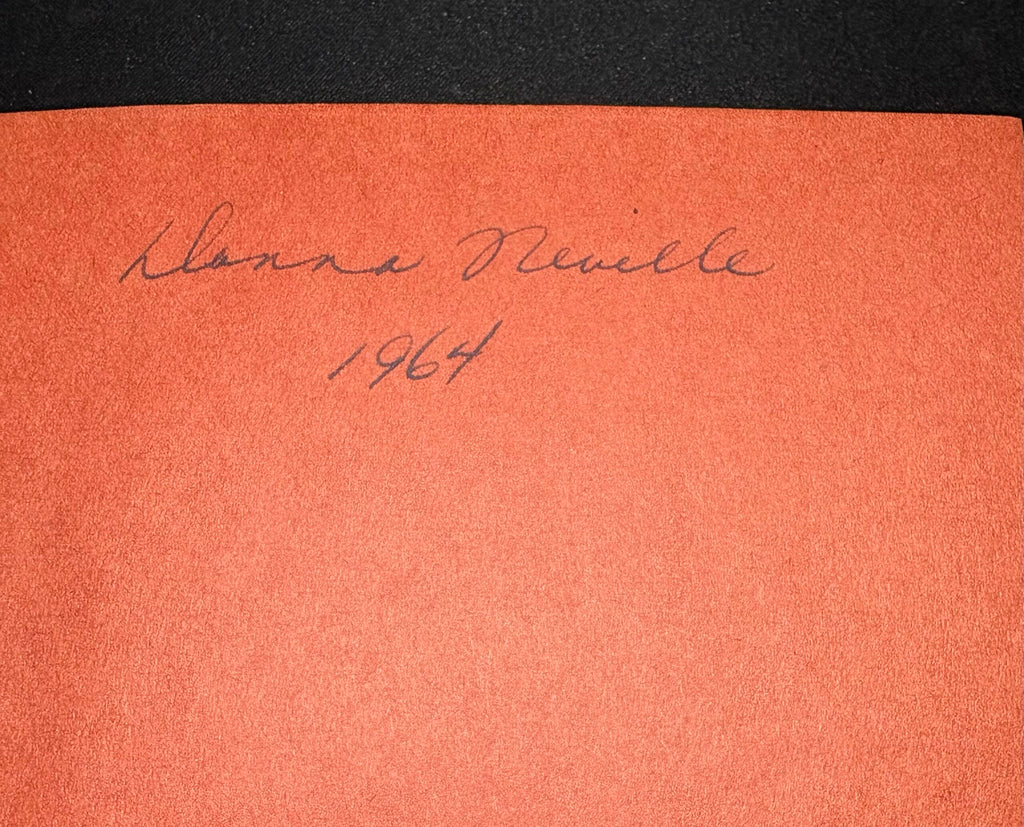 Donna Neville
1964